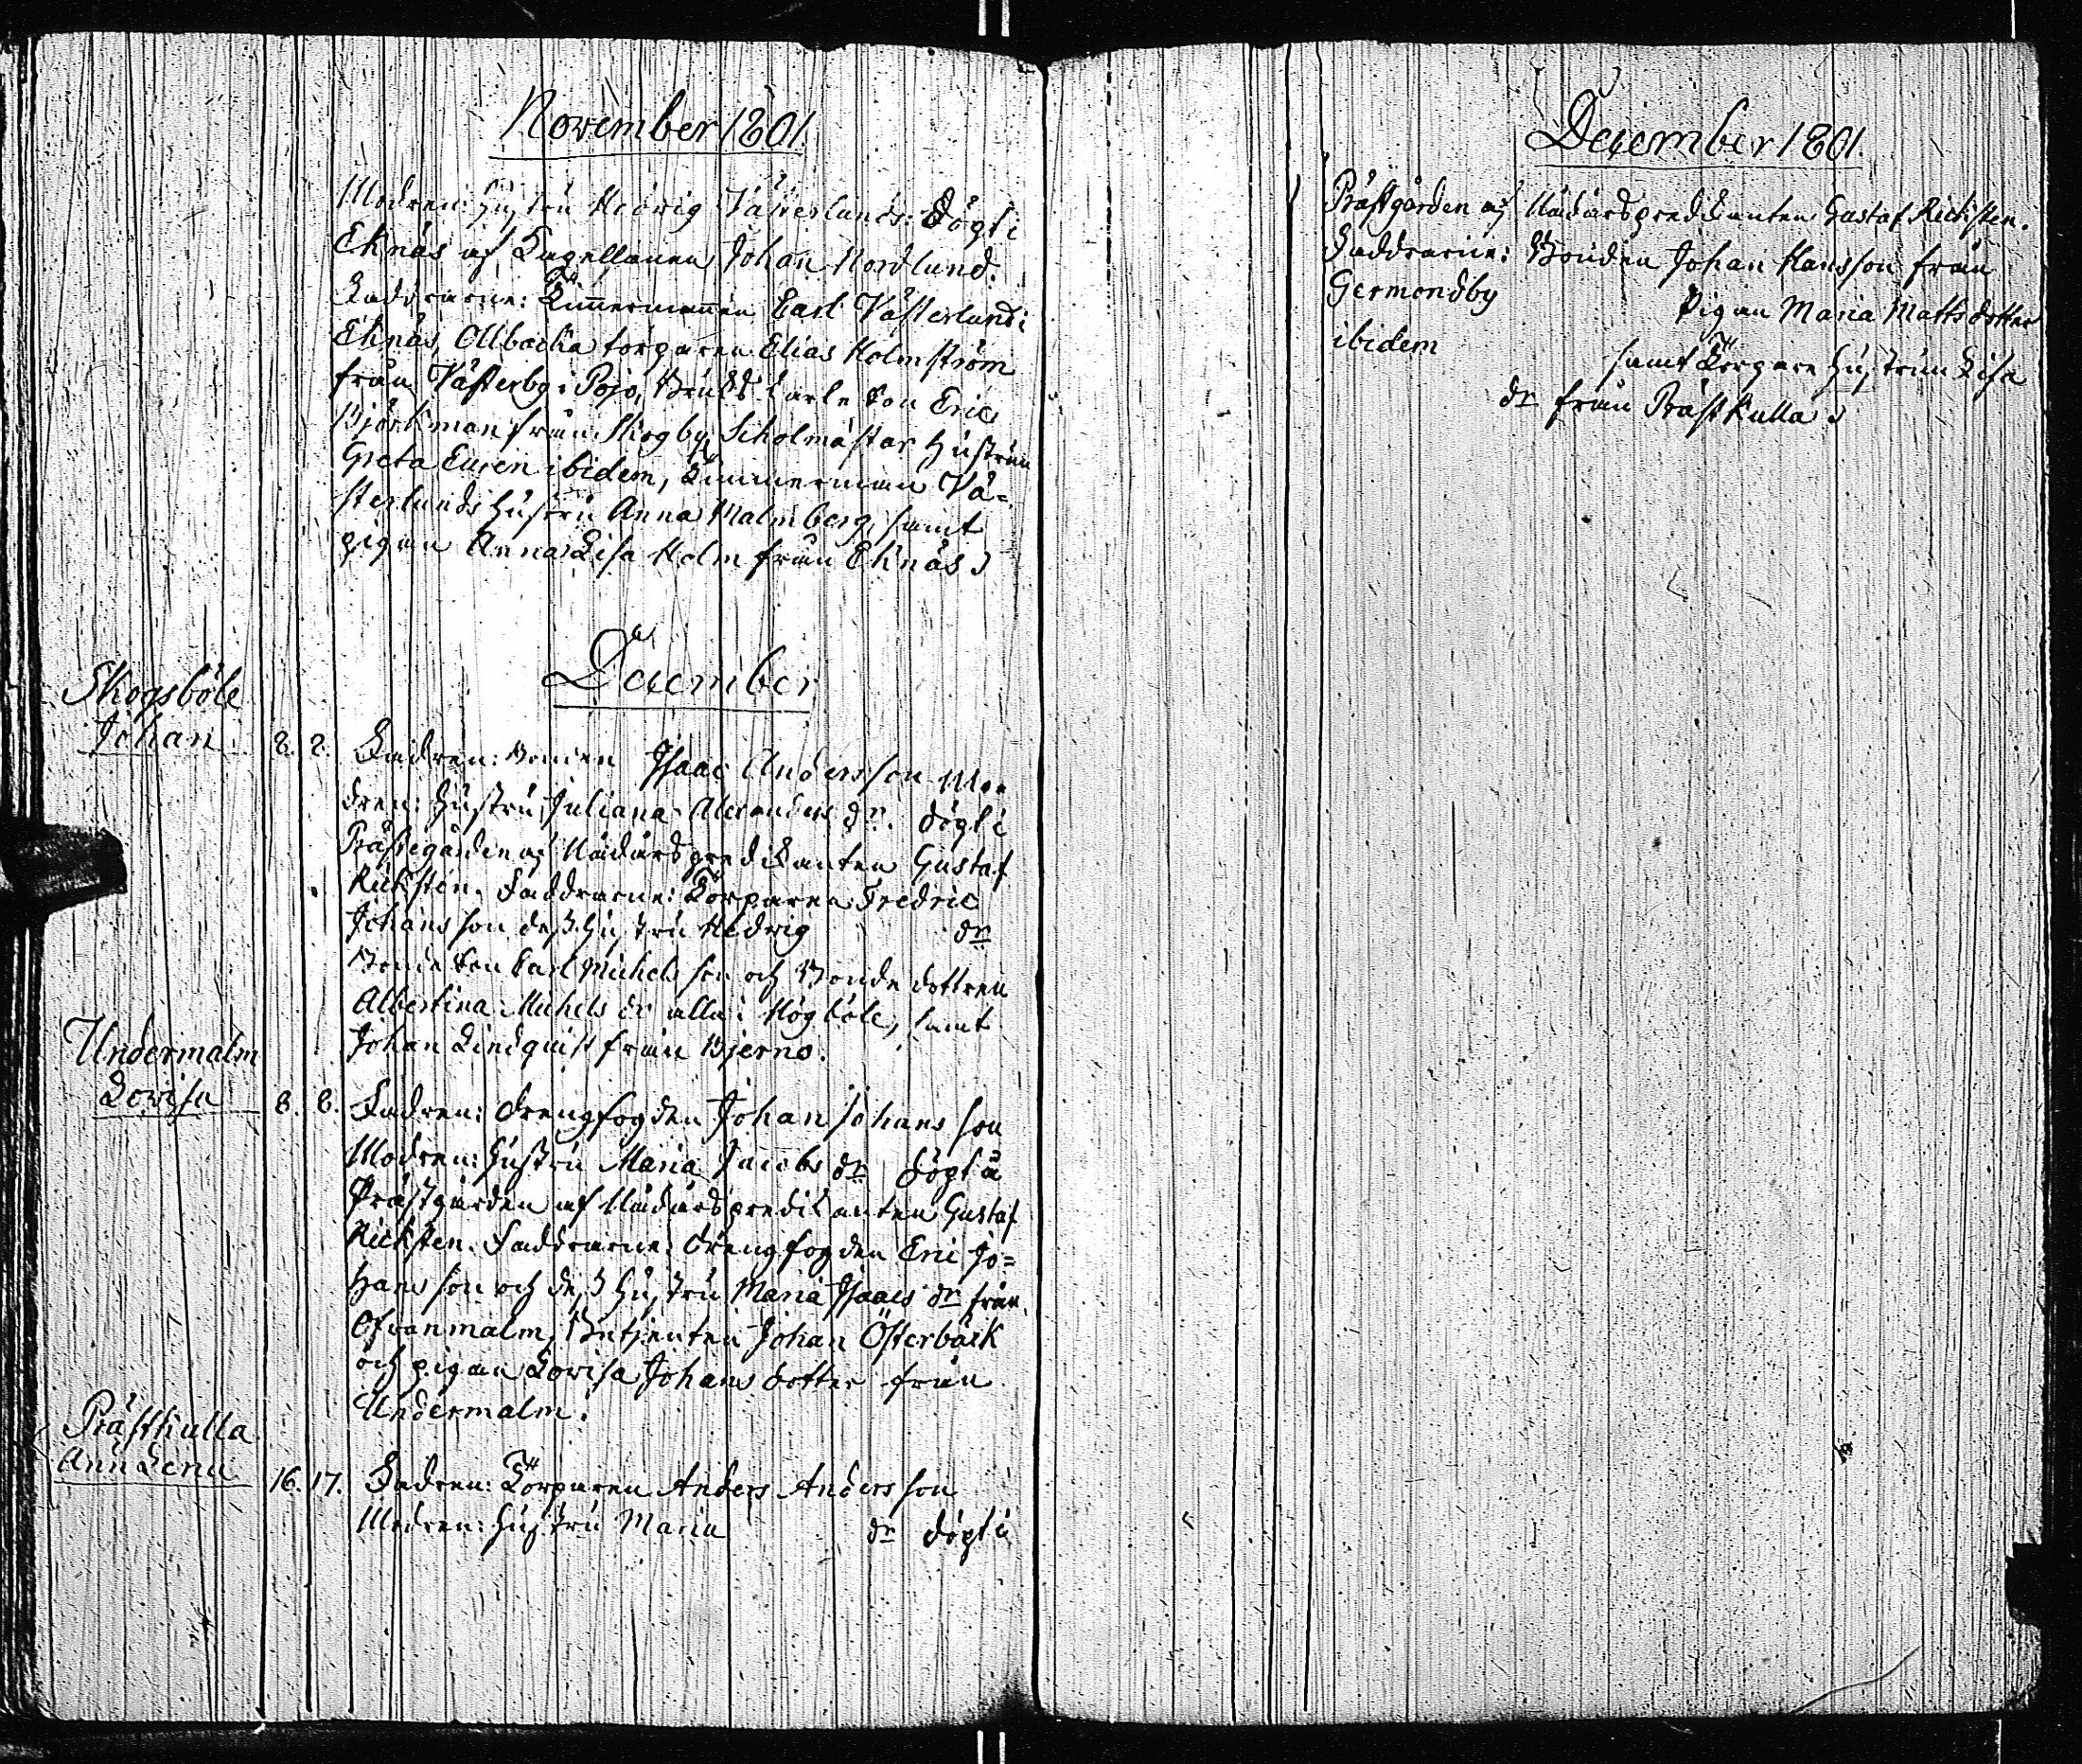 November 1801.
Modren: Hustru Hedvig Västerlund: Döpt i
Eknäs af Capellanen Johan Nordlund.
Faddrarne: Timmermannen Carl Västerlund i
Eknäs, Allbacka torparen Elias Holmström
från Västerby i Pojo, Bruks Karle Son Eric
Björkman från Skogby, Scholmästar Hustrun
Greta Euren ibidem, Timmerman Vä=
sterlunds Hustru Anna Malmberg, samt
pigan Anna Lisa Holm från Eknäs
December
Skogsböle
Johan
8. 8. Fadren: Bonden Isaac Andersson Mo=
dren: Hustru Juliana Alexanders dr. döpt i
Prästegården af Nådårs predikanten Gustaf
Ricksten. Faddrarne: Torparen Fredric
Johansson dess Hustru Hedvig dr
Bonde Son Carl Michelsson och Bonde dottren
Albertina Michels dr alla i Högböle, samt
Johan Lindquist från Bjerno.
Undermalm
Lovisa
8. 8. Fadren: drengfogden Johan Johansson
Modren: Hustru Maria Jacobs dr döpt å
Prästgården af Nådårs predikanten Gustaf
Ricksten. Faddrarne: drengfogden Eric Jo=
hansson och dess Hustru Maria Isaacs dr från
Ofvanmalm, Betjenten Johan Österback
och pigan Lovisa Johans dotter från
Undermalm.
Prästkulla
Ann Lena
16. 17. Fadren: Torparen Anders Andersson
Modren: Hustru Maria dr döpt i
December 1801.
Prästgården af Nådårs predikanten Gustaf Ricksten.
Faddrarne: Bonden Johan Hansson från
Germundby Pigan Maria Matts dotter
ibidem samt Torpare Hustrun Lisa
dr från Prästkulla